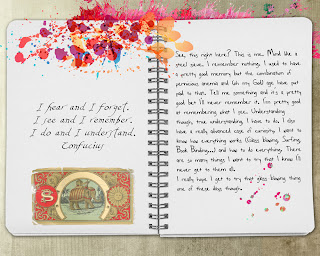 I hear and I forget.
I see and I remember.
I do and I understand.
Confucius
5
See, this right here? This is me. Mind like a
steel sieve. I remember nothing. I used to have
a pretty good memory, but the combination of
pernicious anemia and (oh my God) age have put
paid to that. Tell me something and it's a pretty
good bet I'll never remember it. I'm pretty good
at remembering what I see. Understanding
though, true understanding, I have to do. I also
have a really advanced case of curiosity. I want to
know how everything works (Glass blowing, Surfing,
Book Binding...) and how to do everything. There
are so many things I want to try that I know I'll
never get to them all.
I really have to get to try that glass blowing thing
one of these days though.